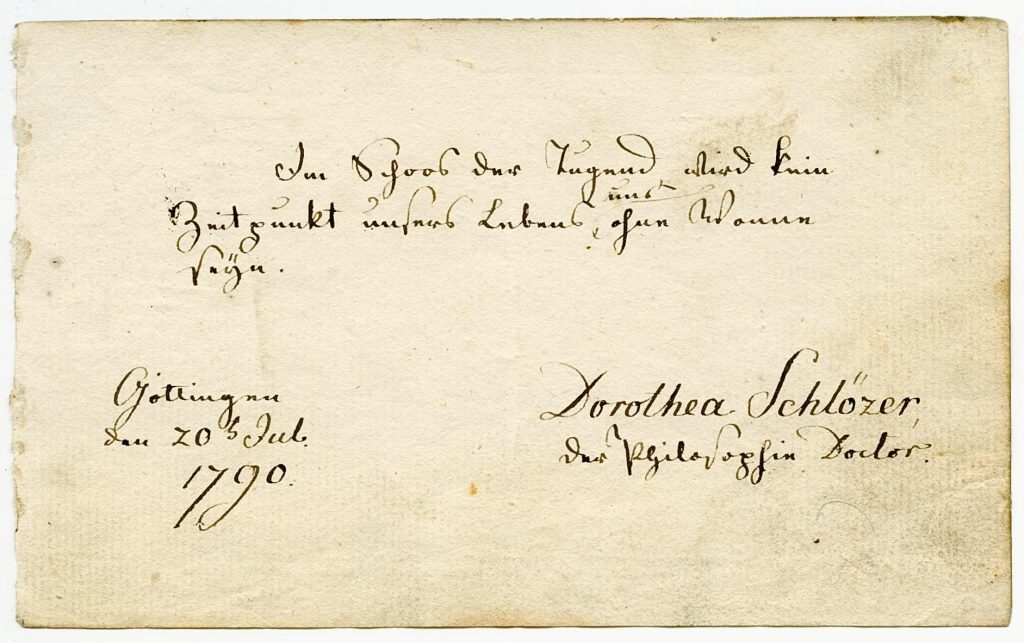 Im Schoos der Tugend wird kein
Zeitpunkt unsers Lebens, uns ohne Wonne
seyn.
Göttingen
den 20ⁿ Jul.
1790.
Dorothea Schlözer,
der Philosophie Doctor.